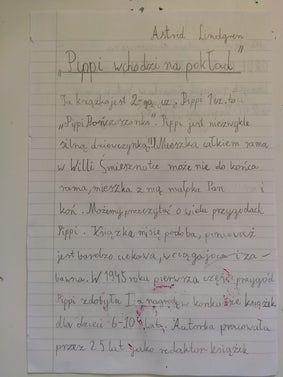 Astrid Lindgren
"Pippi wchodzi na pokład"
Ta książka jest 2-gą cz. Pippi 1 cz. to
"Pippi Pończoszanka". Pippi jest niezwykle
silną dziewczynką!!! Mieszka całkiem sama
w Willi Śmiesznotce może nie do końca
sama, mieszka z nią małpka Pan i
koń. Możemy przeczytać o wielu przygodach
Pippi. Książka mi się podoba, ponieważ
jest bardzo ciekawa, wciągająca i za-
bawna. W 1945 roku pierwsza część przygód
Pippi zdobyła I nagrodę w konkursie książek
dla dzieci 6-10 lat. Autorka pracowała
przez 25 lat jako redaktor książek